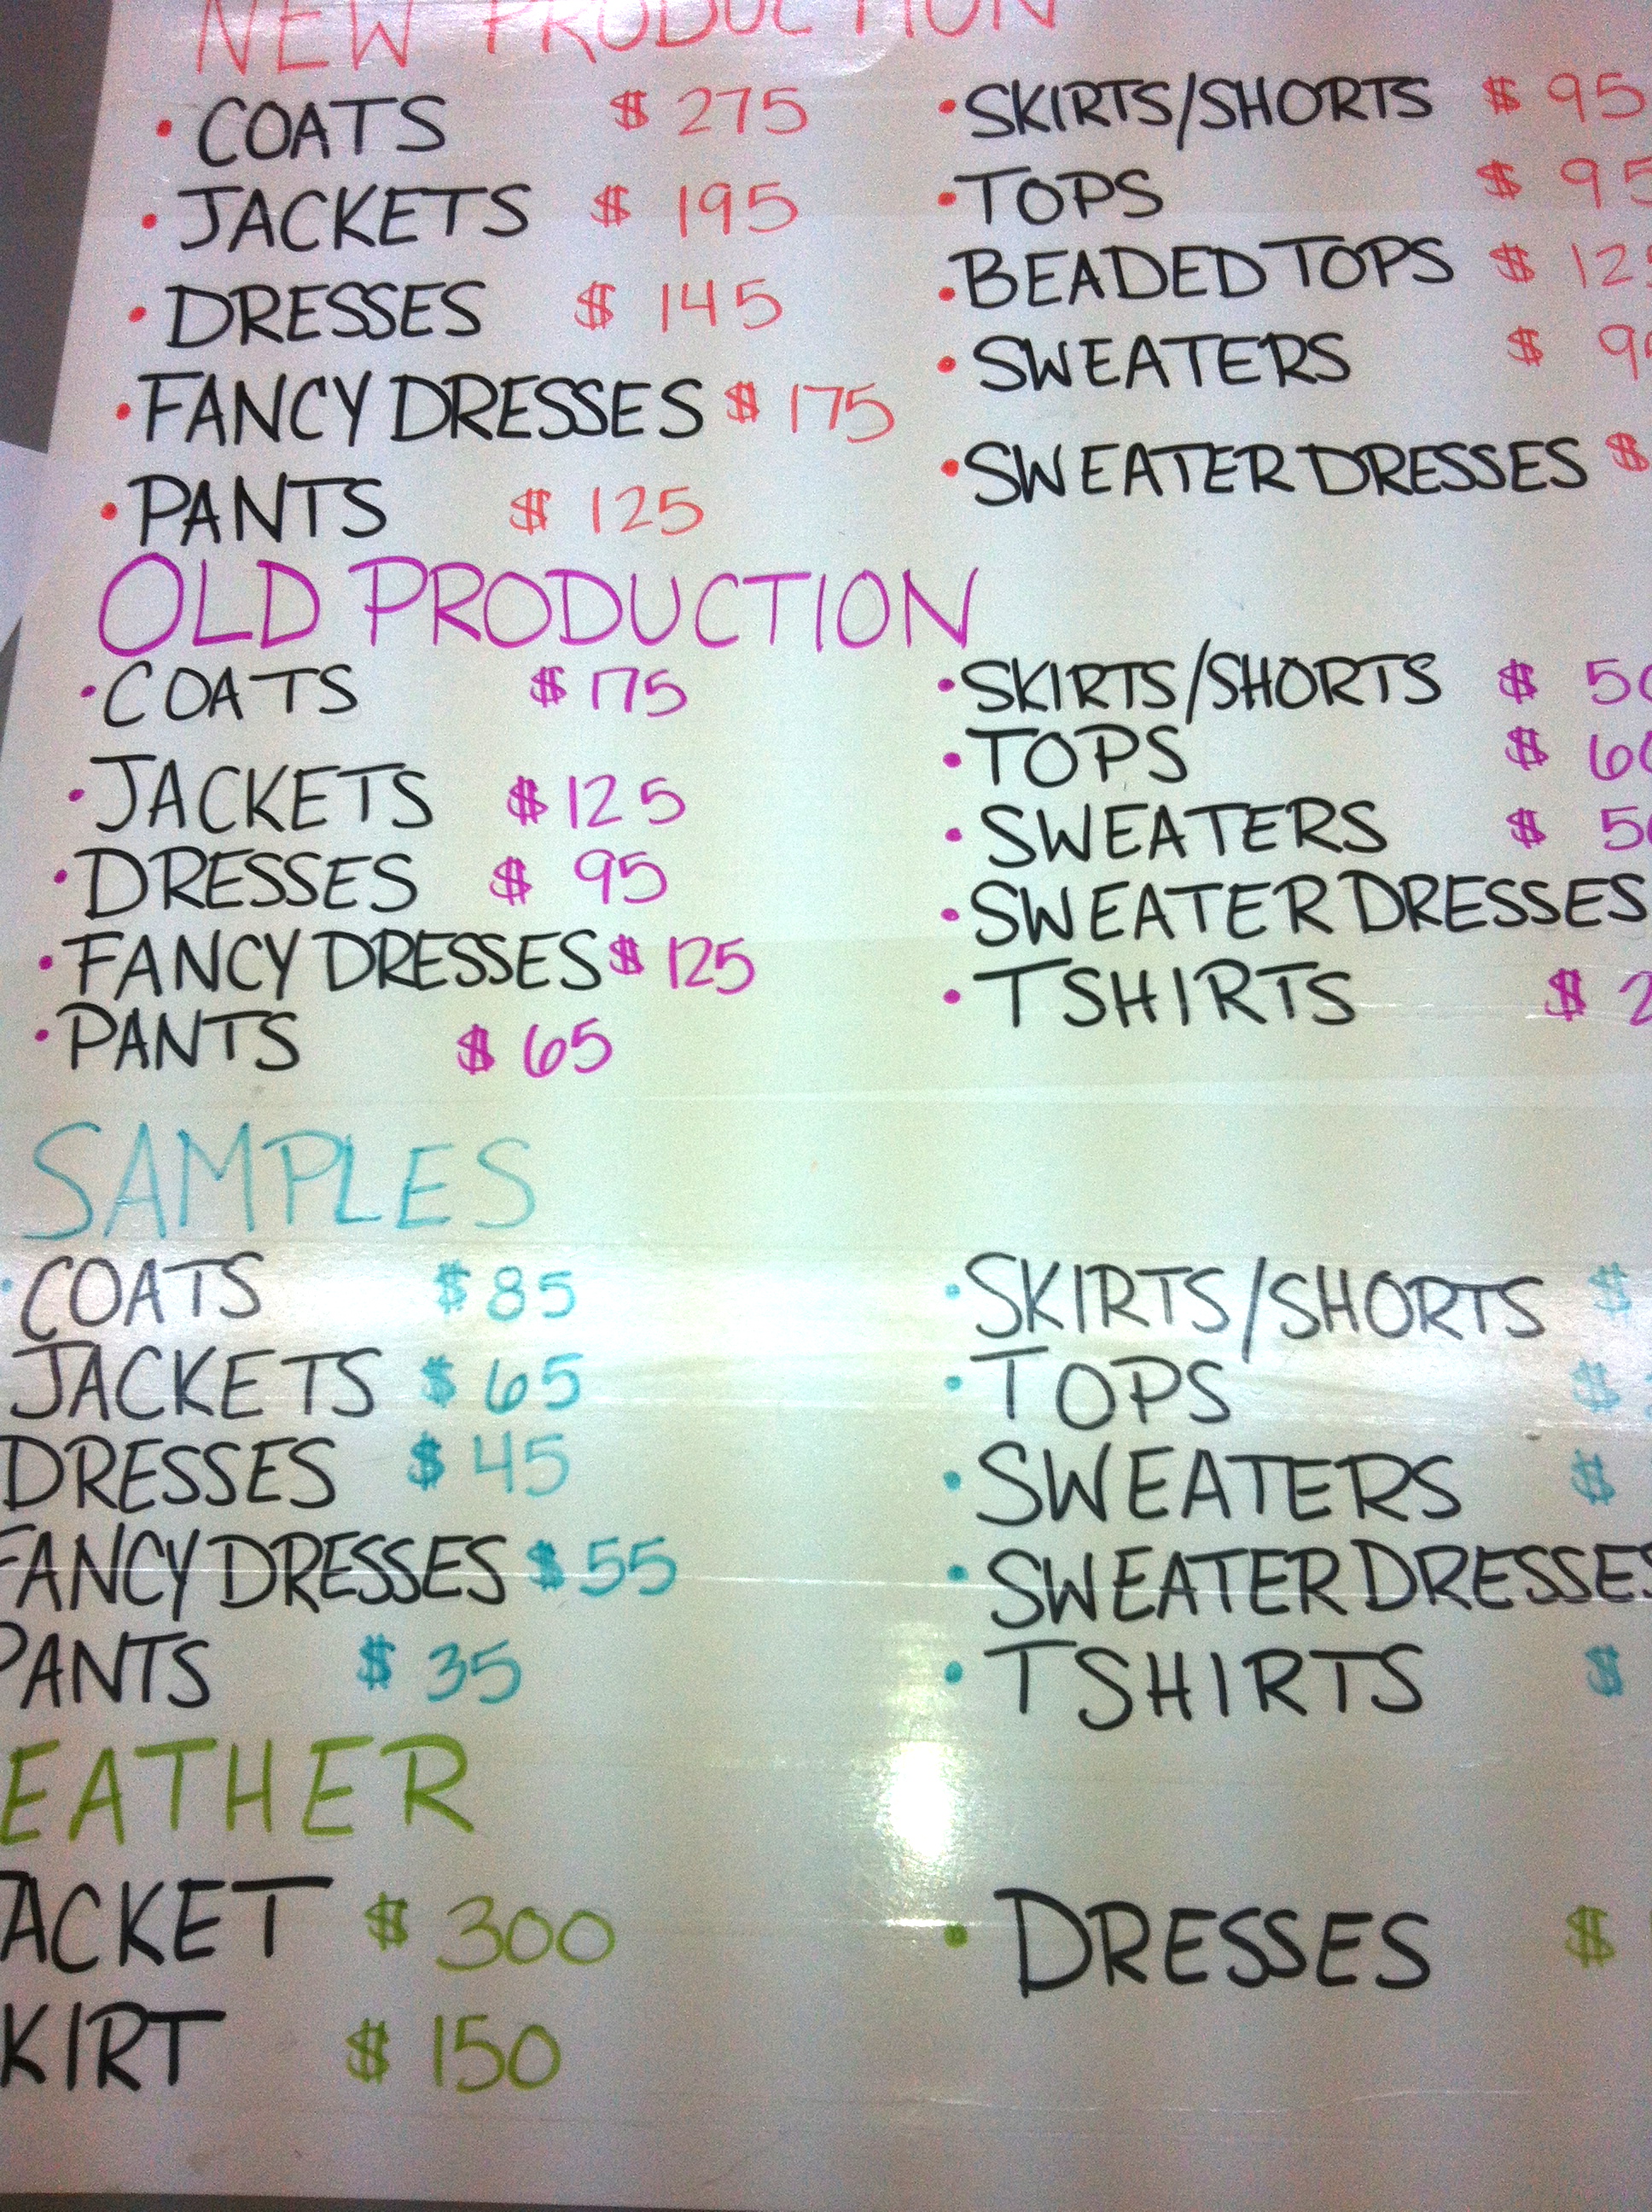 NEW PRODUCTION
• COATS $ 275
• JACKETS $ 195
• DRESSES $ 145
• FANCY DRESSES $ 175
• PANTS $ 125
• SKIRTS/SHORTS $ 95
• TOPS $ 95
• BEADED TOPS $
• SWEATERS $
• SWEATER DRESSES $
OLD PRODUCTION
• COATS $ 175
• JACKETS $ 125
• DRESSES $ 95
• FANCY DRESSES $ 125
• PANTS $ 65
• SKIRTS/SHORTS $ 50
• TOPS $ 60
• SWEATERS $
• SWEATER DRESSES
• TSHIRTS $
SAMPLES
• COATS $ 85
JACKETS $ 65
DRESSES $ 45
FANCY DRESSES $ 55
PANTS $ 35
• SKIRTS/SHORTS $
• TOPS $
• SWEATERS $
• SWEATER DRESSES
• TSHIRTS $
EATHER
ACKET $ 300
KIRT $ 150
• DRESSES $